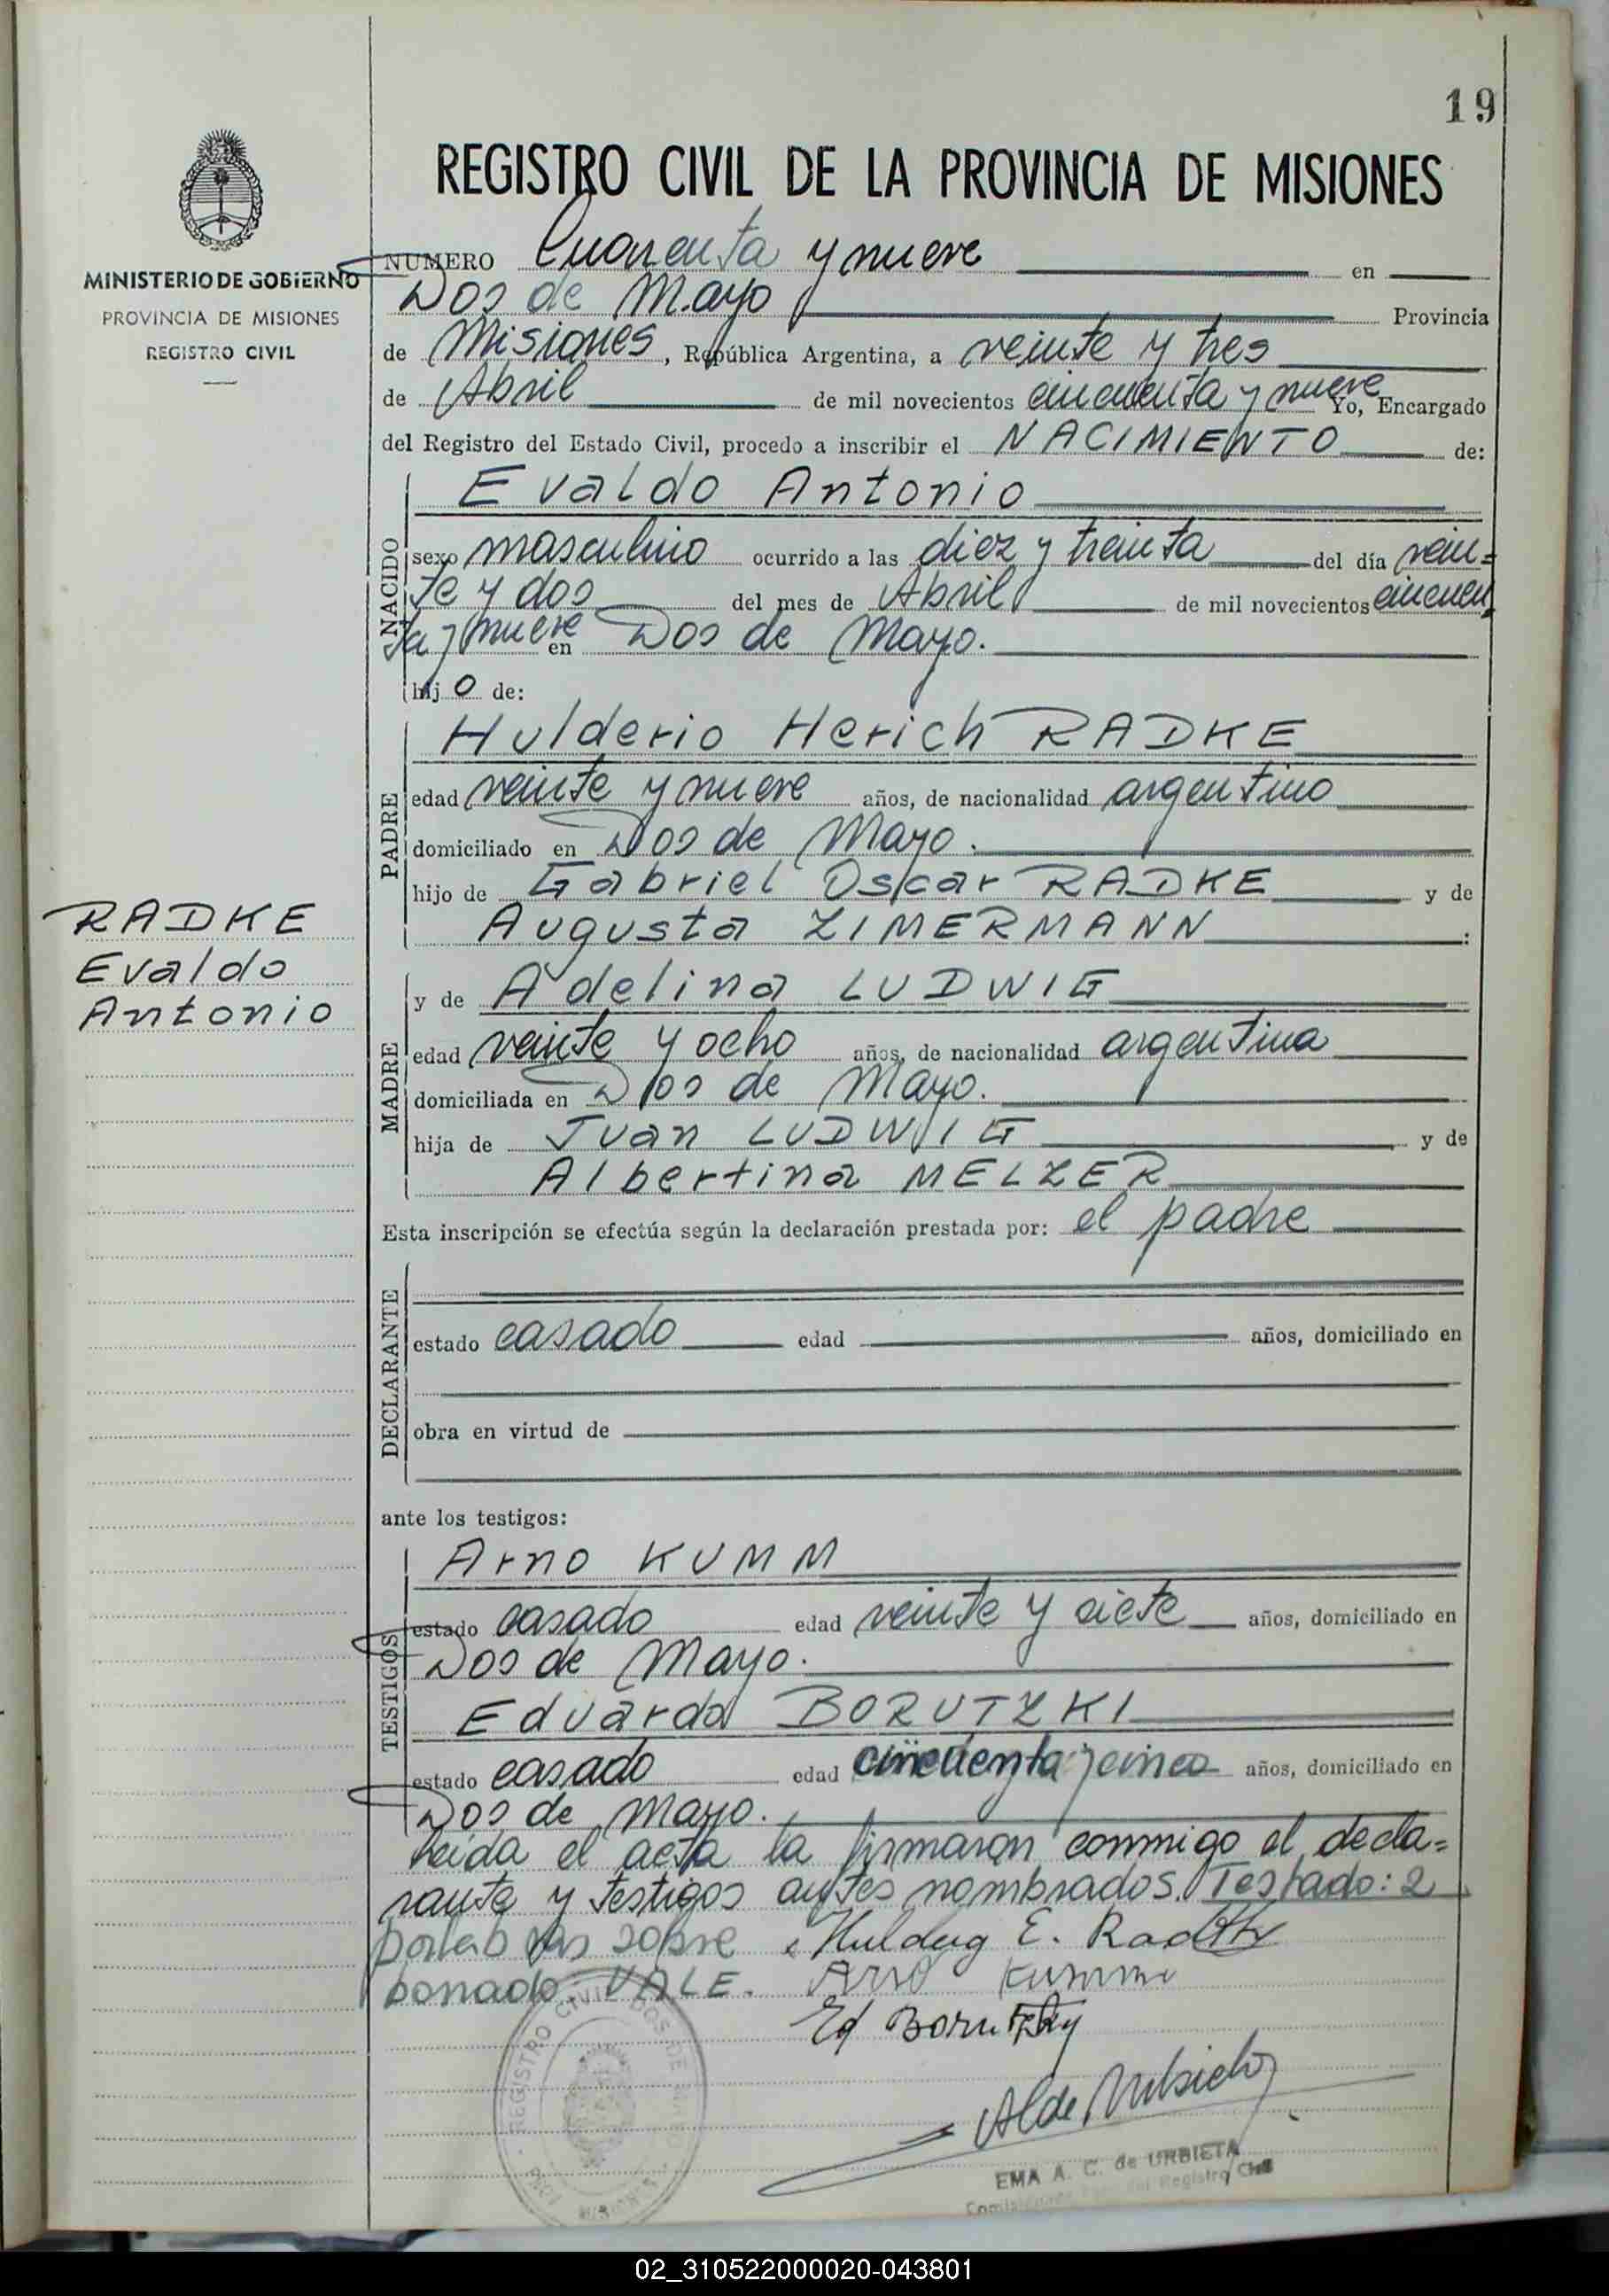 19
REGISTRO CIVIL DE LA PROVINCIA DE MISIONES
MINISTERIO DE GOBIERNO
PROVINCIA DE MISIONES
REGISTRO CIVIL
NUMERO Cuarenta y nueve en
Dos de Mayo Provincia
de Misiones, República Argentina, a veinte y tres
de Abril de mil novecientos cincuenta y nueve Yo, Encargado
del Registro del Estado Civil, procedo a inscribir el NACIMIENTO de:
NACIDO
Evaldo Antonio
sexo masculino ocurrido a las diez y treinta del día vein=
te y dos del mes de Abril de mil novecientos cincuen
ta y nueve en Dos de Mayo.
hij o de:
PADRE
Hulderio Herich RADKE
edad veinte y nueve años, de nacionalidad argentino
domiciliado en Dos de Mayo.
hijo de Gabriel Oscar RADKE y de
Augusta ZIMERMANN :
RADKE
Evaldo
Antonio
MADRE
y de Adelina LUDWIG
edad veinte y ocho años, de nacionalidad argentina
domiciliada en Dos de Mayo.
hija de Juan LUDWIG y de
Albertina MELZER
Esta inscripción se efectúa según la declaración prestada por: el padre
DECLARANTE
estado casado edad años, domiciliado en
obra en virtud de
ante los testigos:
TESTIGOS
Arno KUMM
estado casado edad veinte y siete años, domiciliado en
Dos de Mayo.
Eduardo BORUTZKI
estado casado edad cincuenta y cinco años, domiciliado en
Dos de Mayo.
Leída el acta la firmaron conmigo el decla=
rante y testigos antes nombrados. Testado: 2
sobre Huldug E. Radtke
borrado: VALE. Arno Kumm
Ed Borutzky
REGISTRO CIVIL DOS DE MAYO
EMA A. C. de URBIETA
del Registro Civil
02_310522000020-043801